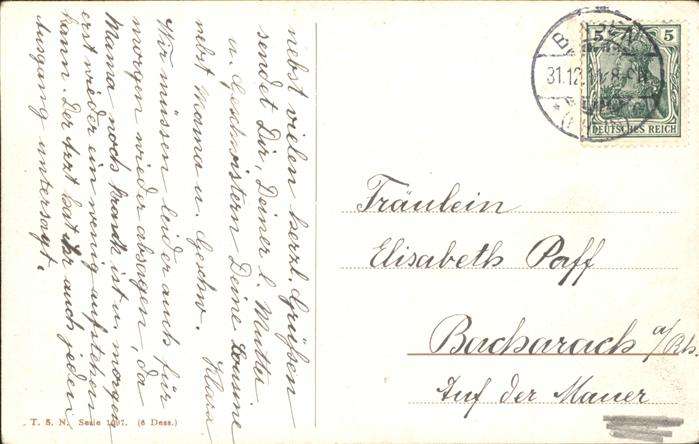 nebst vielen herzl. Grüßen
sendet Dir, Deiner l. Mutter
u. Geschwistern Deine Cousine
nebst Mama u. Geschw. Klara
Wir müssen leider auch für
morgen wieder absagen, da
Mama noch krank ist u. morgen
erst wieder ein wenig aufstehen
kann. Der Arzt hat ihr auch jeden
Ausgang untersagt.
T. S. N. Serie (6 Dess.)
5 5
DEUTSCHES REICH
BINGEN
31.12.
Fräulein
Elisabeth Paff
Bacharach a/Rh.
Auf der Mauer